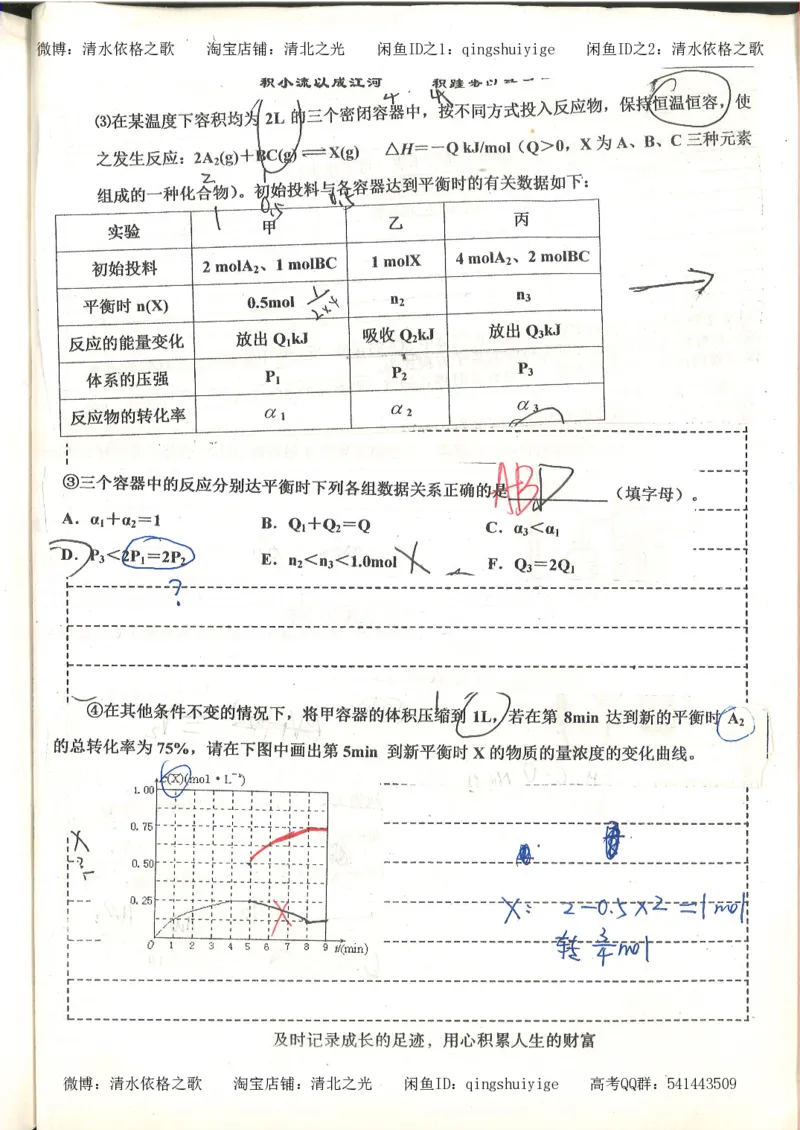 微博：清水依格之歌 淘宝店铺：清北之光 闲鱼ID之1：qingshuiyige 闲鱼ID之2：清水依格之歌
积小流以成江河 积跬步以
⑶在某温度下容积均为 2L 的三个密闭容器中，按不同方式投入反应物，保持恒温恒容，使
之发生反应：2A₂(g)＋BC(g)⇌X(g) △H＝－Q kJ/mol（Q＞0，X 为 A、B、C 三种元素
组成的一种化合物）。初始投料与各容器达到平衡时的有关数据如下：
实验 甲 乙 丙
初始投料 2 molA₂、1 molBC 1 molX 4 molA₂、2 molBC
平衡时 n(X) 0.5mol n₂ n₃
反应的能量变化 放出 Q₁kJ 吸收 Q₂kJ 放出 Q₃kJ
体系的压强 P₁ P₂ P₃
反应物的转化率 α₁ α₂ α₃
③三个容器中的反应分别达平衡时下列各组数据关系正确的是 ABD （填字母）。
A．α₁＋α₂＝1 B．Q₁＋Q₂＝Q C．α₃＜α₁
D．P₃＜2P₁＝2P₂ E．n₂＜n₃＜1.0mol F．Q₃＝2Q₁
?
④在其他条件不变的情况下，将甲容器的体积压缩到 1L，若在第 8min 达到新的平衡时 A₂
的总转化率为 75%，请在下图中画出第 5min 到新平衡时 X 的物质的量浓度的变化曲线。
c(X)(mol·L⁻¹)
1.00
0.75
0.50
0.25
0 1 2 3 4 5 6 7 8 9 t(min)
X: 2-0.5×2=1mol
转 3/4 mol
及时记录成长的足迹，用心积累人生的财富
微博：清水依格之歌 淘宝店铺：清北之光 闲鱼ID：qingshuiyige 高考QQ群：541443509